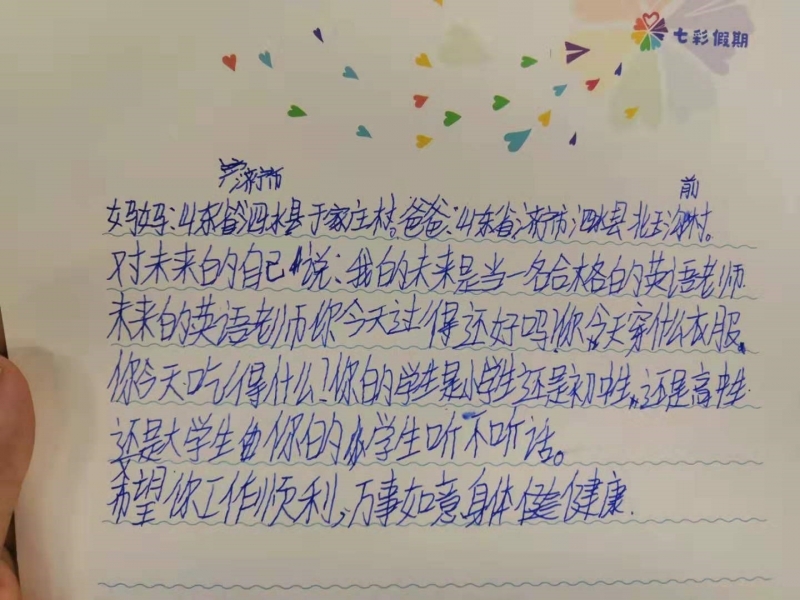 七彩假期
济宁市
前
妈妈:山东省泗水县于家庄村。爸爸:山东省济宁市泗水县北玉沟村。
对未来的自己说:我的未来是当一名合格的英语老师
未来的英语老师你今天过得还好吗?你今天穿什么衣服。
你今天吃得什么?你的学生是小学生还是初中生,还是高中生
还是大学生 你的学生听不听话。
希望你工作顺利,万事如意身体健康.